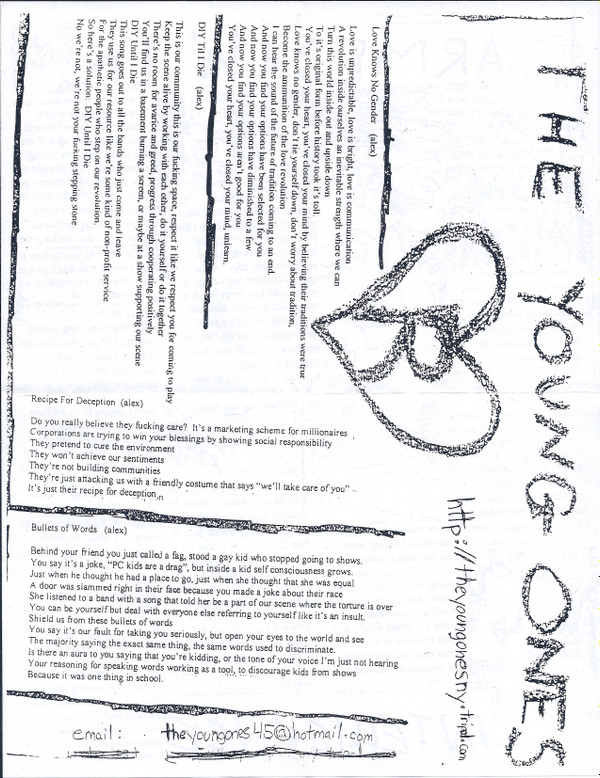 THE YOUNG ONES
http://theyoungonesny.tripod.com
Love Knows No Gender (alex)
Love is unpredictable, love is bright, love is communication
A revolution inside ourselves an inevitable strength where we can
Turn this world inside out and upside down
To it's original form before history took it's toll.
You've closed your heart, you've closed your mind by believing their traditions were true
Love knows no gender, don't tie yourself down, don't worry about tradition,
Become the ammunition of the love revolution
I can hear the sound of the future of tradition coming to an end.
And now you find your options have been selected for you
And now you find your options have diminished to a few
And now you find your options aren't good for you
You've closed your heart, you've closed your mind, unlearn.
DIY Til I Die (alex)
This is our community this is our fucking space, respect it like we respect you for coming to play
Keep the scene alive by working with each other, do it yourself or do it together
There's no room for avarice and greed, progress through cooperating positively
You'll find us in a basement burning a screen, or maybe at a show supporting our scene
DIY Until I Die
This song goes out to all the bands who just come and leave
They use us for our resource like we're some kind of non-profit service
For the apathetic people who step on our revolution.
So here's a solution: DIY Until I Die
No we're not, we're not your fucking stepping stone
Recipe For Deception (alex)
Do you really believe they fucking care? It's a marketing scheme for millionaires
Corporations are trying to win your blessings by showing social responsibility
They pretend to cure the environment
They won't achieve our sentiments
They're not building communities
They're just attacking us with a friendly costume that says "we'll take care of you"
It's just their recipe for deception
Bullets of Words (alex)
Behind your friend you just called a fag, stood a gay kid who stopped going to shows.
You say it's a joke, "PC kids are a drag", but inside a kid self consciousness grows.
Just when he thought he had a place to go, just when she thought that she was equal
A door was slammed right in their face because you made a joke about their race
She listened to a band with a song that told her be a part of our scene where the torture is over
You can be yourself but deal with everyone else referring to yourself like it's an insult.
Shield us from these bullets of words
You say it's our fault for taking you seriously, but open your eyes to the world and see
The majority saying the exact same thing, the same words used to discriminate.
Is there an aura to you saying that you're kidding, or the tone of your voice I'm just not hearing
Your reasoning for speaking words working as a tool, to discourage kids from shows
Because it was one thing in school.
email: theyoungones45@hotmail.com